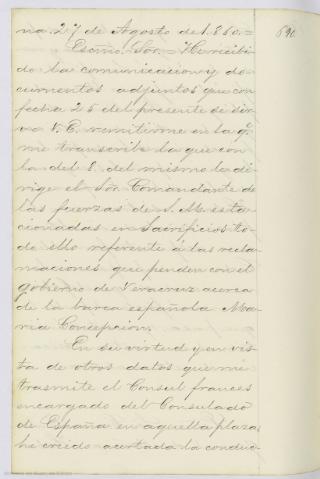 na 27 de Agosto de 1.860.=
690
Escmo. Sor.= He recibi-
do la comunicacion y do-
cumentos adjuntos que con
fecha 25 del presente se sir-
ve V. E. remitirme en la q.e
me transcribe la que con
la del 8. del mismo le di-
rige el Sor. Comandante de
las fuerzas de S. M. esta-
cionadas en Sacrificios to-
do ello referente á las recla-
maciones que penden con el
gobierno de Veracruz acerca
de la barca española Ma-
ria Concepcion.
En su virtud y en vis-
ta de otros datos que me
trasmite el Consul frances
encargado del Consulado
de España en aquella plaza
he creido acertada la conduc-